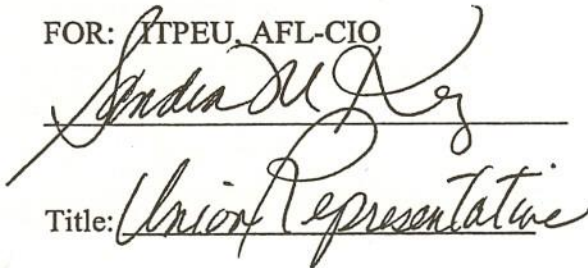 FOR: ITPEU, AFL-CIO
Sandra M Key
Title: Union Representative